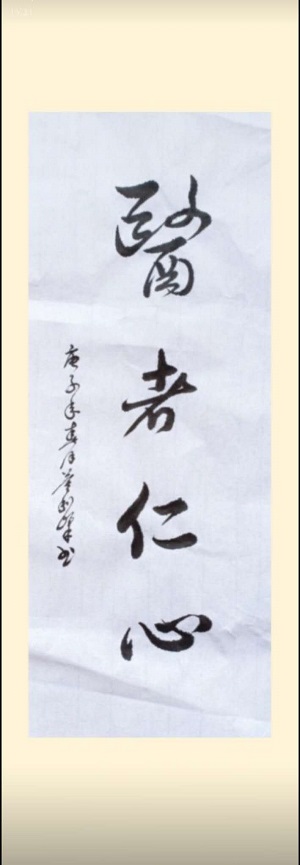 醫者仁心
庚子年春月